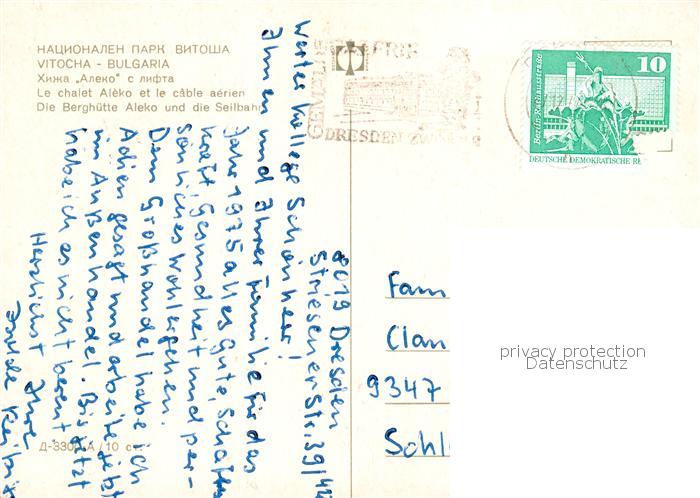 НАЦИОНАЛЕН ПАРК ВИТОША
VITOCHA - BULGARIA
Хижа „Алеко" с лифта
Le chalet Alèko et le câble aérien
Die Berghütte Aleko und die Seilbahn
DRESDEN
10
Berlin-Rathausstraße
DEUTSCHE DEMOKRATISCHE RE
8019 Dresden
Striesener Str. 39/42
Werter Kollege Schönherr!
Ihnen und Ihrer Familie für das
Jahr 1975 alles Gute, Schaffens
kraft, Gesundheit und per-
sönliches Wohlergehen.
Dem Großhandel habe ich
Adieu gesagt und arbeite jetzt
im Außenhandel. Bis jetzt
habe ich es nicht bereut.
Herzlichst Ihre
Fam
Clau
9347
Sohl
privacy protection
Datenschutz